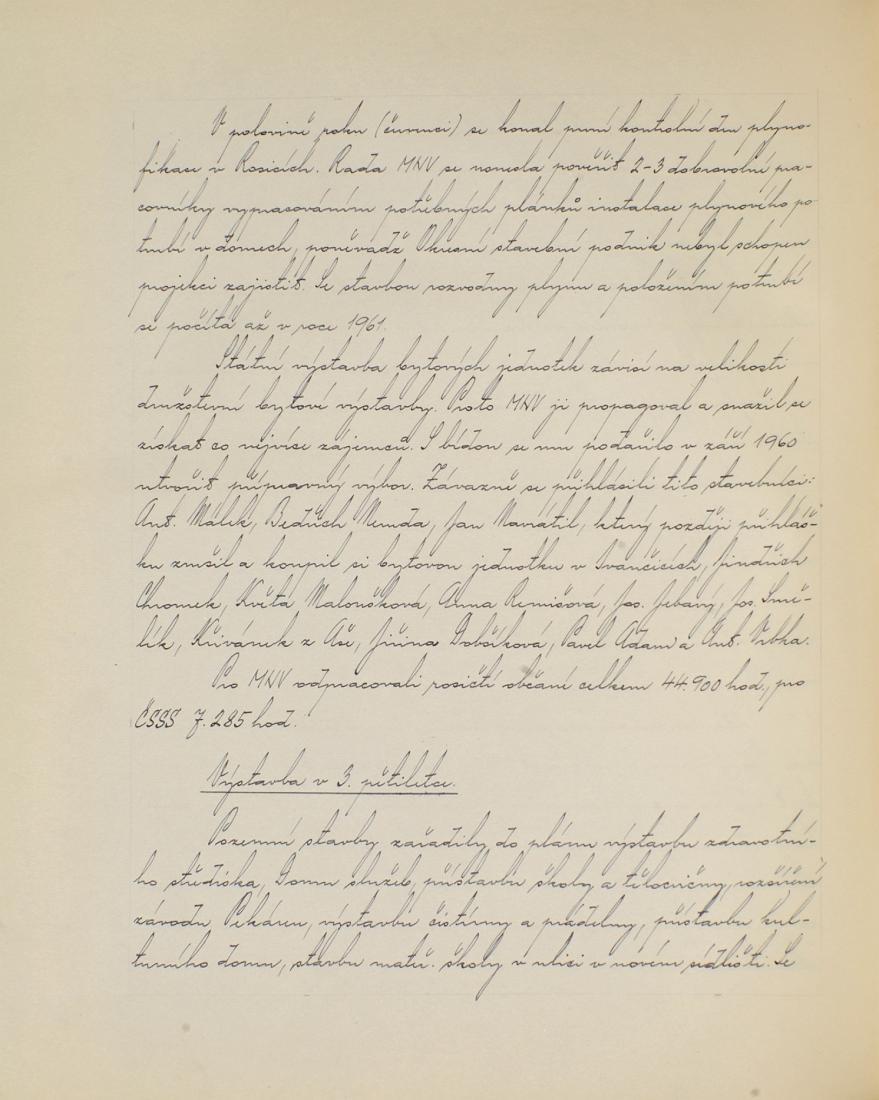 V polovině roku (červenci) se konal první kontrolní den plyno-
fikace v Rosicích. Rada MNV se usnesla pověřit 2-3 dobrovolné pra-
covníky vypracováním potřebných plánků instalace plynového po-
trubí v domech, poněvadž Okresní stavební podnik nebyl schopen
projekci zajistit. Se stavbou rozvodny plynu a položením potrubí
se počítá až v roce 1961.
Státní výstavba bytových jednotek závisí na velikosti
družstevní bytové výstavby. Proto MNV ji propagoval a snažil se
získat co nejvíce zájemců. S bídou se mu podařilo v září 1960
utvořit přípravný výbor. Závazně se přihlásili tito stavebníci:
Ant. Málek, Bedřich Nenda, Jan Navrátil, který později přihláš-
ku zrušil a koupil si bytovou jednotku v Ivančicích, Jindřich
Chromek, Květa Maloušková, Anna Remišová, Jos. Jebavý, Jos. Smě-
lík, Křivánek z Aše, Jiřina Dobšíková, Pavel Adam a Ant. Vrbka.
Pro MNV odpracovali rosičtí občané celkem 44.900 hod., pro
ČSSS 7.285 hod.
Výstavba v 3. pětiletce.
Pozemní stavby zařadily do plánu výstavbu zdravotní-
ho střediska, Domu služeb, přístavbu školy a tělocvičny, rozšíření
závodu Pekáren, výstavbu čistírny a prádelny, přístavbu kul-
turního domu, stavbu mateř. školy v ulici v novém sídlišti. Se